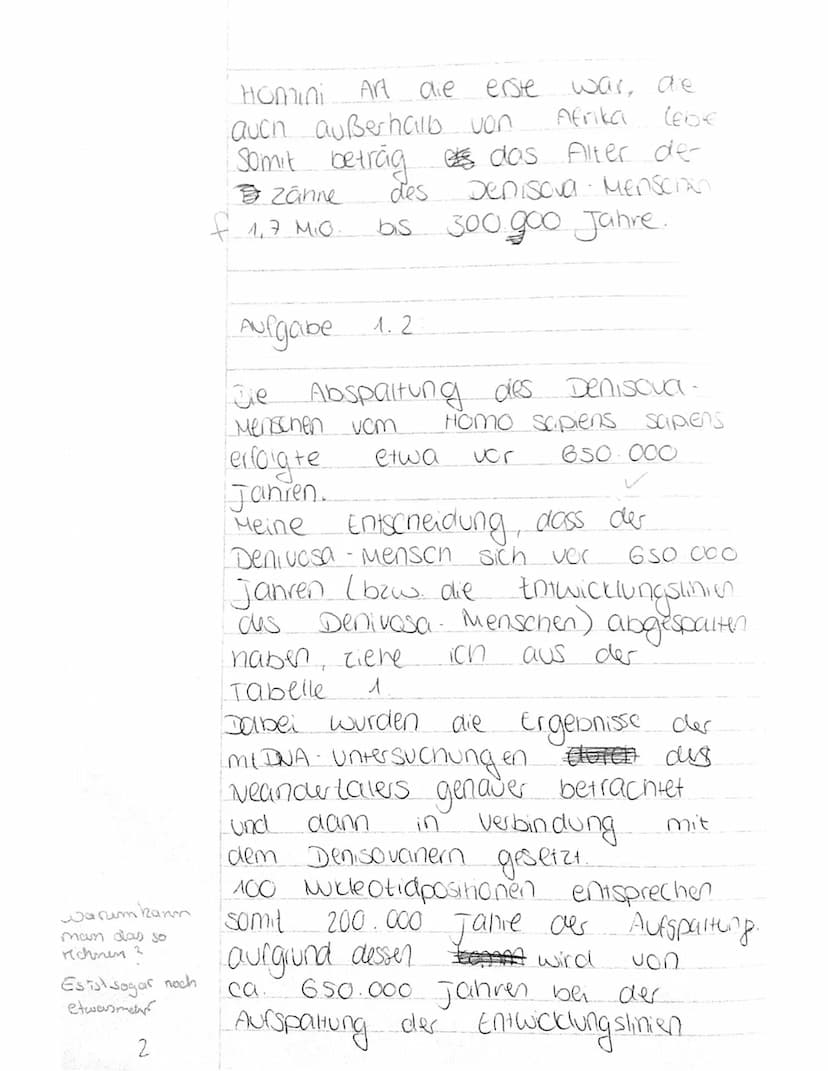 Homini Art die erste war, die
auch außerhalb von Afrika lebe
Somit beträg das Alter de-
Zähne des Denisova-Menschen
f 1,7 Mio. bis 300.000 Jahre.
Aufgabe 1.2
Die Abspaltung des Denisova-
Menschen vom Homo sapiens sapiens
erfolgte etwa vor 650.000
Jahren.
Meine Entscheidung, dass der
Denivosa-Mensch sich vor 650 000
Jahren (bzw. die Entwicklungslinien
des Denivosa-Menschen) abgespalten
haben, ziehe ich aus der
Tabelle 1.
Dabei wurden die Ergebnisse der
mtDNA-Untersuchungen des
Neandertalers genauer betrachtet
und dann in Verbindung mit
dem Denisovanern gesetzt.
100 Nukleotidpositionen entsprechen
somit 200.000 Jahre der Aufspaltung.
aufgrund dessen wird von
ca. 650.000 Jahren bei der
Aufspaltung der Entwicklungslinien
warum kann
man das so
rechnen?
Es ist sogar noch
etwas mehr
2